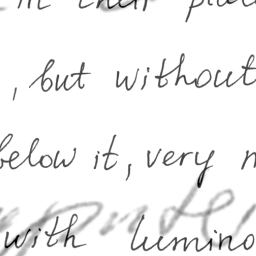 in their pla
, but without
below it, very
with lumino